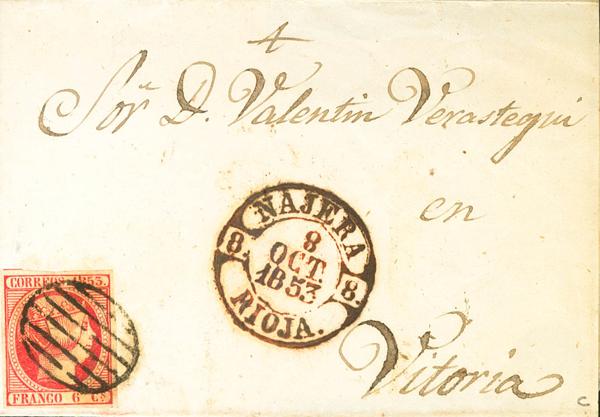 4
Sor. D. Valentin Verastegui
en
Vitoria
NAJERA
8
OCT.
1853
8. 8.
RIOJA.
CORREOS 1853.
FRANCO 6 Cs
C